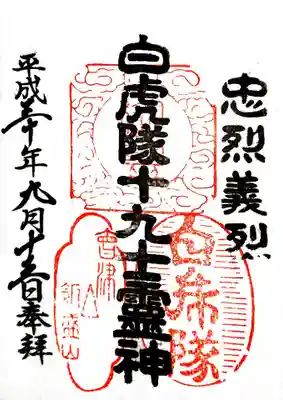 忠烈義烈
白虎隊十九士霊神
平成三十年九月十三日奉拝
白虎隊
會津
飯盛山